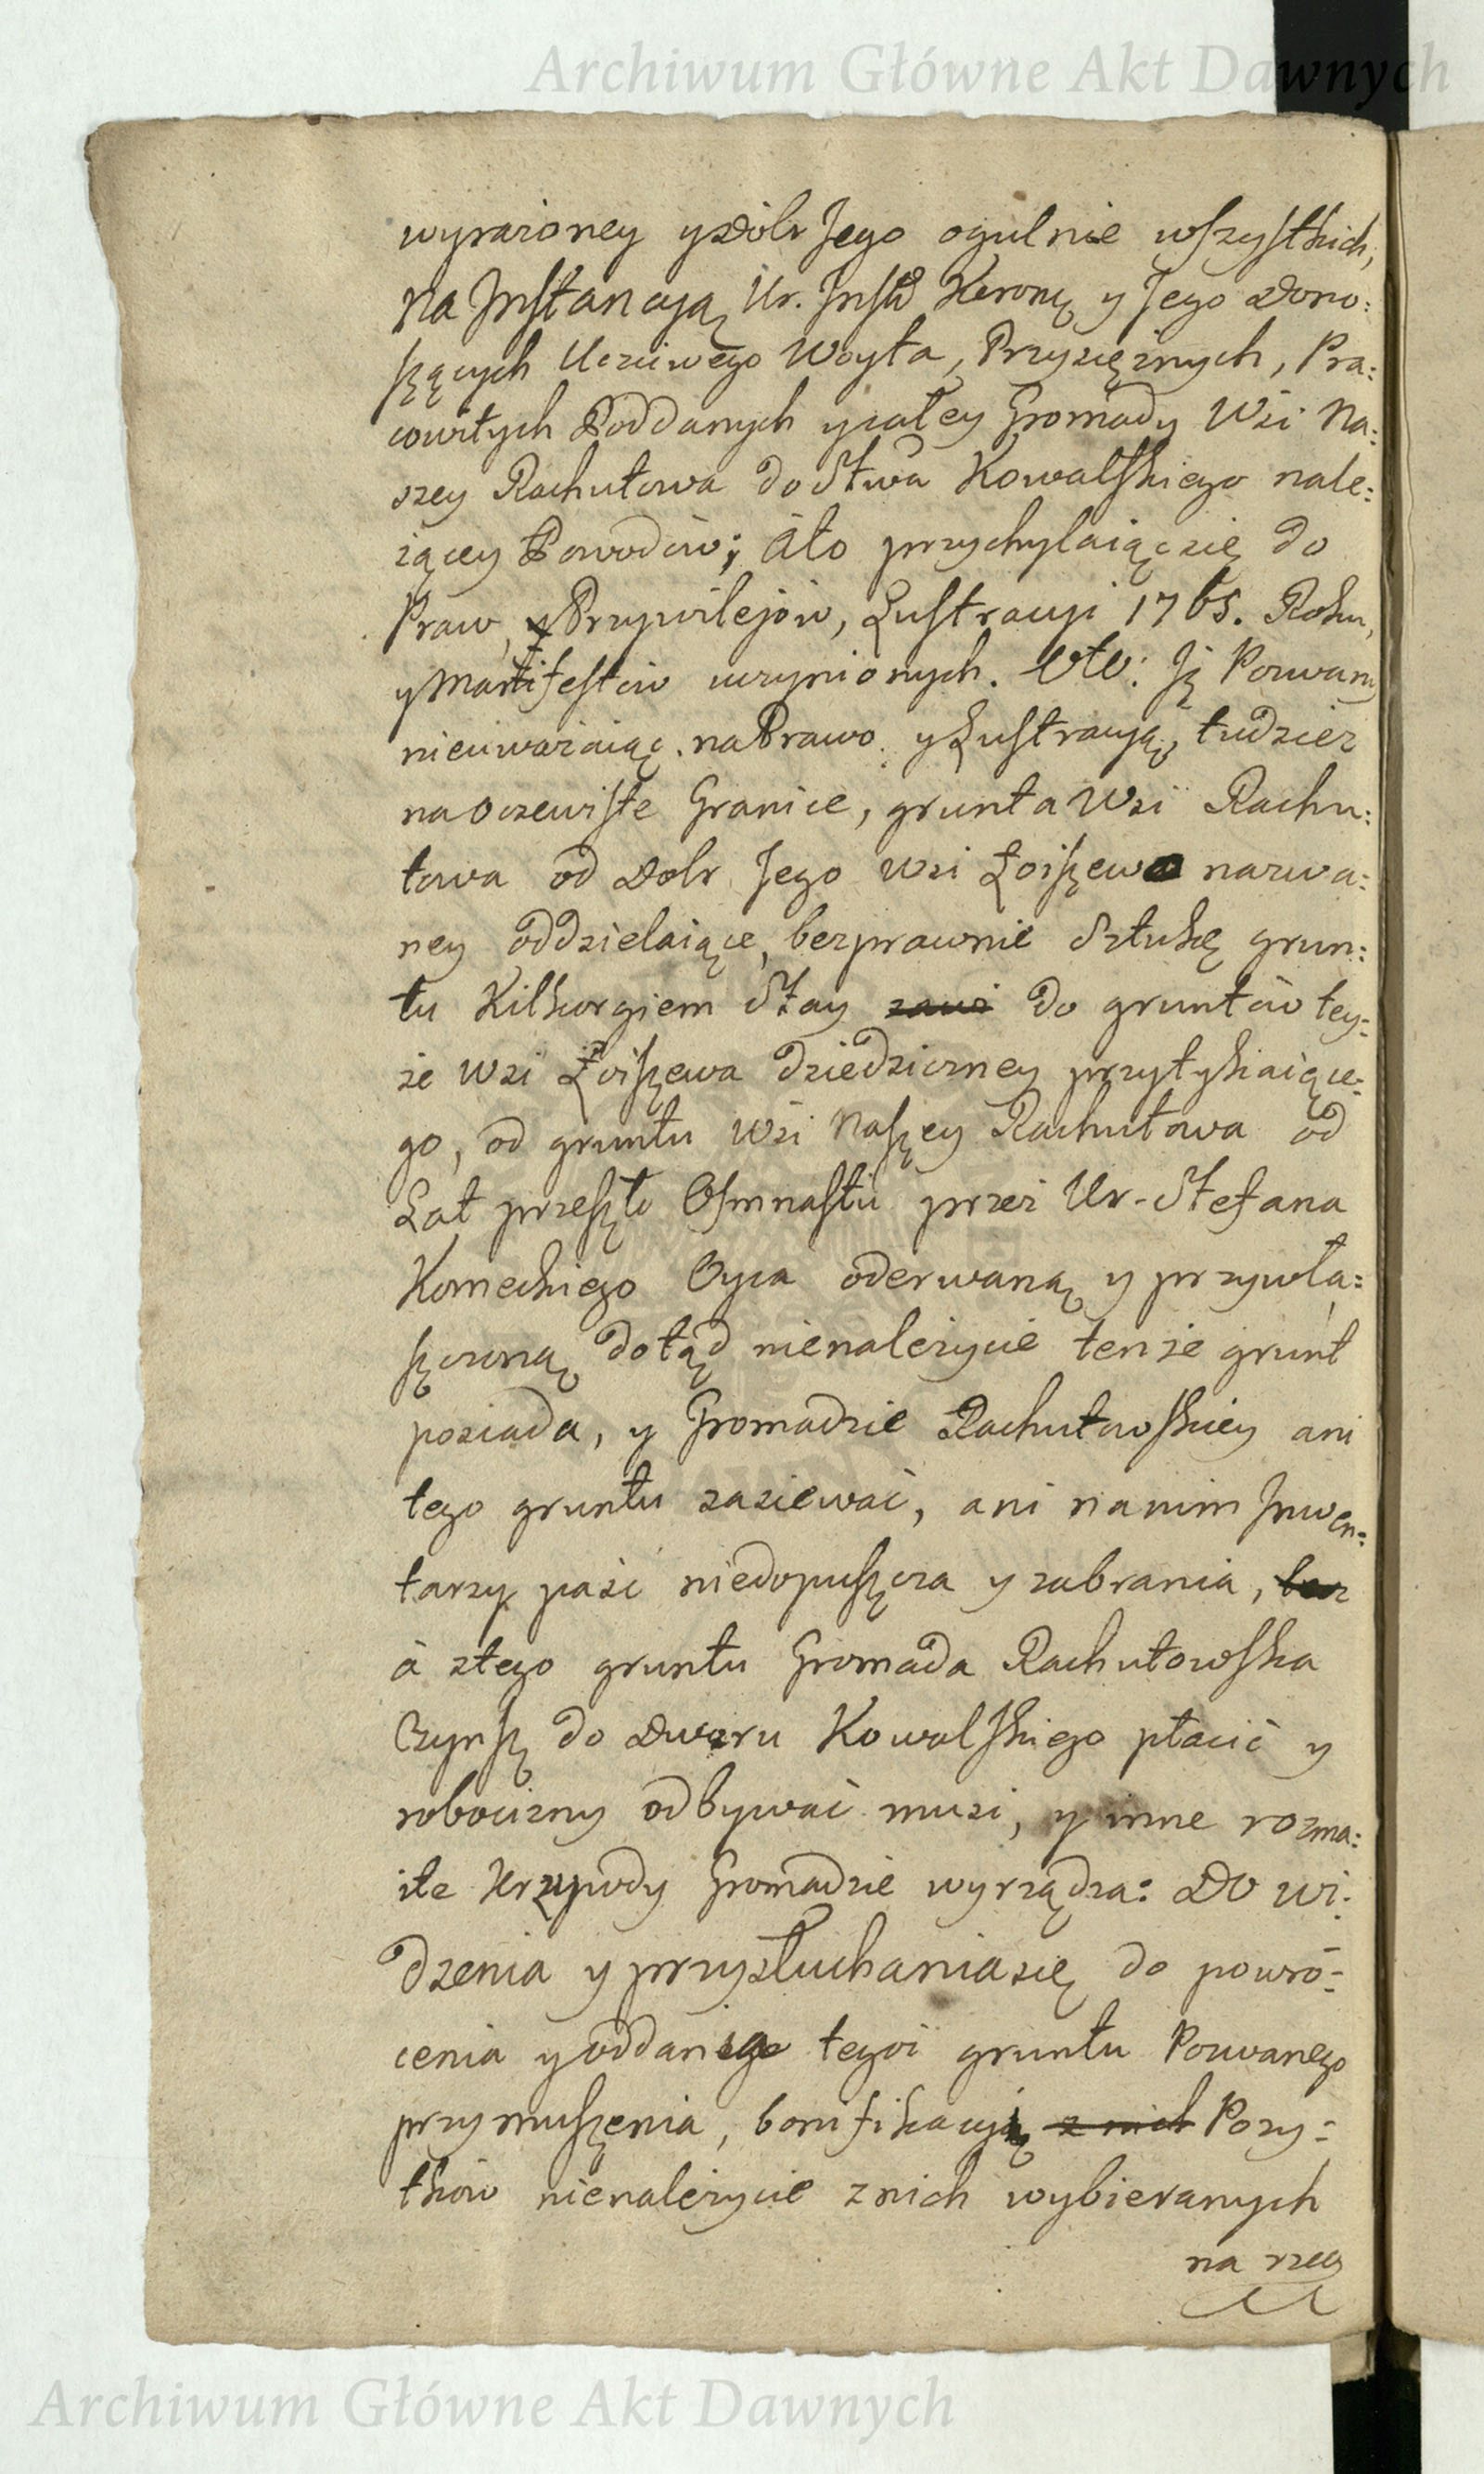 Archiwum Główne Akt Dawnych
wyrażoney y Dóbr Jego ogulnie wszystkich,
na Jnstancyą Ur. Jnstig Korony y Jego Dono:
szących Uczciwego Woyta, Przysięznych, Pra:
cowitych Poddanych y całey Gromady Wsi Na:
szey Rachutowa do Stwa Kowalskiego nale:
żącey Powodów; A to przychylaiąc się do
Praw, y Przywilejów, Lustracyi 1765. Roku,
y Manifestów uczynionych. Iż Pozwany
nieuważaiąc na Prawo y Lustracyią, tudzież
na oczewiste Granice, grunta Wsi Rachu:
towa od Dobr Jego wsi Łoiszewa nazwa:
ney oddzielaiące, bezprawnie Sztukę grun:
tu Kilkorgiem Stay zawi do gruntów tey:
że wsi Łoiszewa dziedziczney przytykaiące:
go, od gruntu Wsi Naszey Rachutowa od
Lat przeszło Osmnastu przez Ur. Stefana
Komeckiego Oyca oderwaną y przywła:
szczoną dotąd nienależycie tenże grunt
posiada, y Gromadzie Rachutowskiey ani
tego gruntu zasiewać, ani na nim Jnwen:
tarzy paść niedopuszcza y zabrania,
á ztego gruntu Gromada Rachutowska
Czynsz do Dworu Kowalskiego płacić y
robocizny odbywać musi, y inne rozma:
ite Krzywdy Gromadzie wyrządza: Do wi:
dzenia y przysłuchania się do powró:
cenia y oddania tegoż gruntu Pozwanego
przymuszenia, bonifikacyią z nich Pozy:
tków nienależycie z nich wybieranych
na rzecz
Archiwum Główne Akt Dawnych